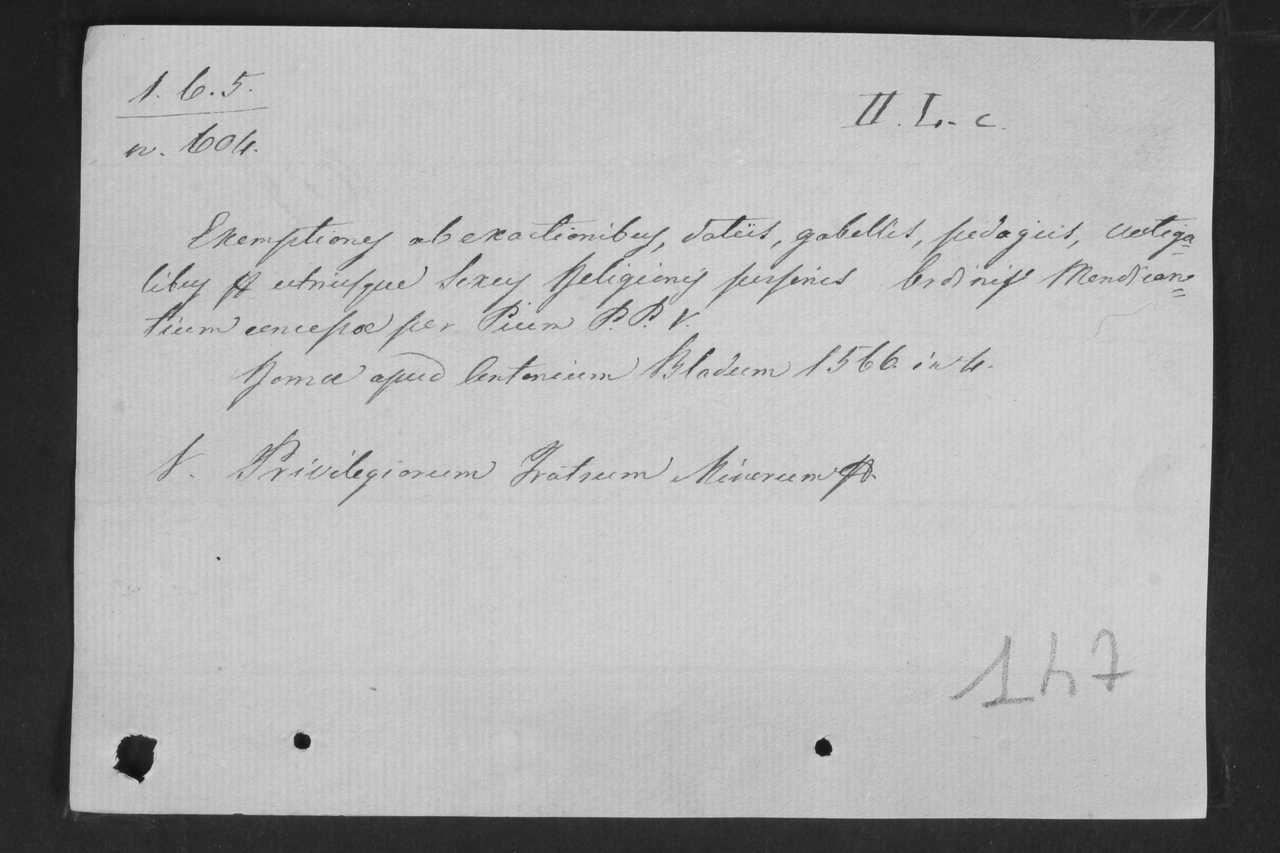 1. 6. 5.
n. 604.
II. L. c.
Exemptiones ab exactionibus, datiis, gabellis, pedagiis, vectiga=
libus & utriusque sexus Religionis personis Ordinis Mendican=
tium concessæ per Pium P. P. V.
Romæ apud Antonium Bladum 1566 in 4.
V. Privilegiorum Fratrum Minorum &.
147